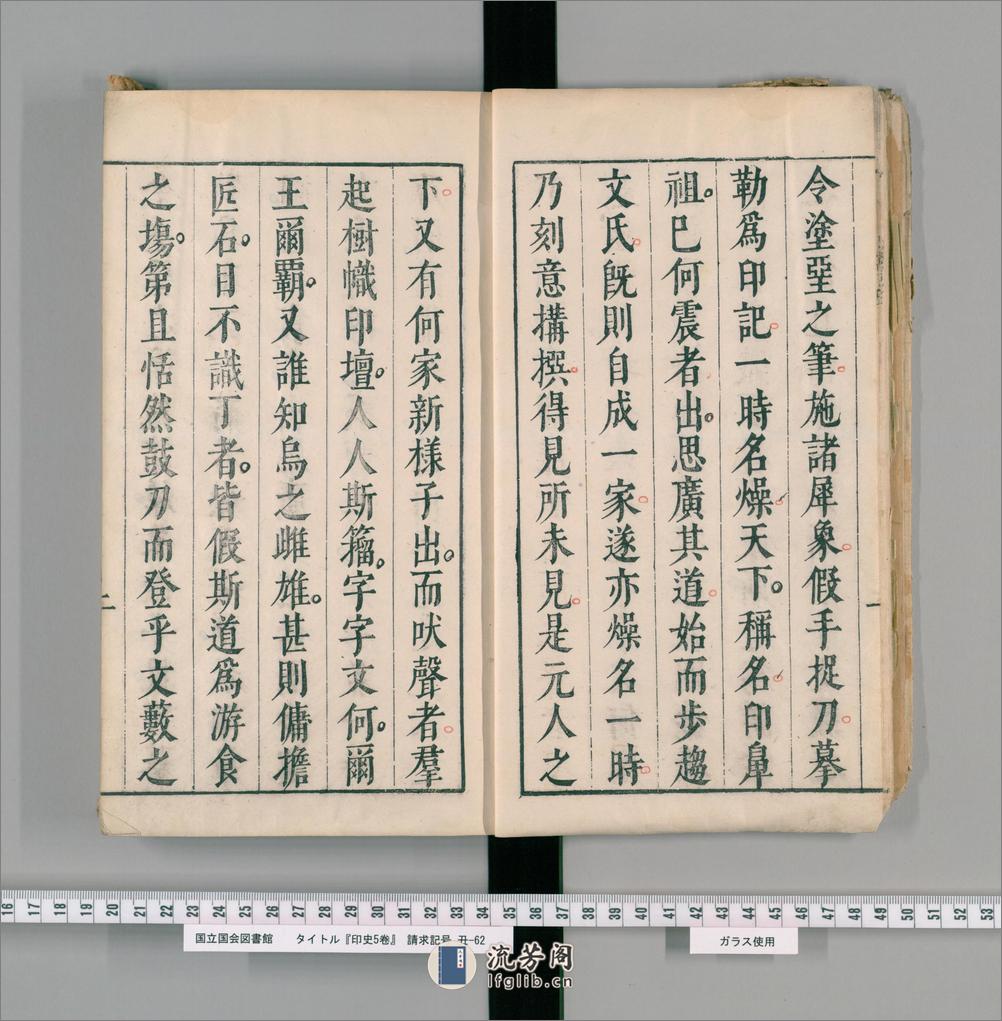 令塗堊之筆施諸犀象假手捉刀摹
勒爲印記一時名燥天下稱名印鼻
祖巳何震者出思廣其道始而步趨
文氏旣則自成一家遂亦燥名一時
乃刻意搆撰得見所未見是元人之
一
下又有何家新樣子出而吠聲者羣
起樹幟印壇人人斯籀字字文何爾
王爾覇又誰知烏之雌雄甚則傭擔
匠石目不識丁者皆假斯道爲游食
之塲第且恬然鼓刀而登乎文藪之
二
16 17 18 19 20 21 22 23 24 25 26 27 28 29 30 31 32 33 34 35 36 37 38 39 40 41 42 43 44 45 46 47 48 49 50 51 52 53
国立国会図書館 タイトル『印史5巻』 請求記号 丑-62
ガラス使用
流芳阁
lfglib.cn